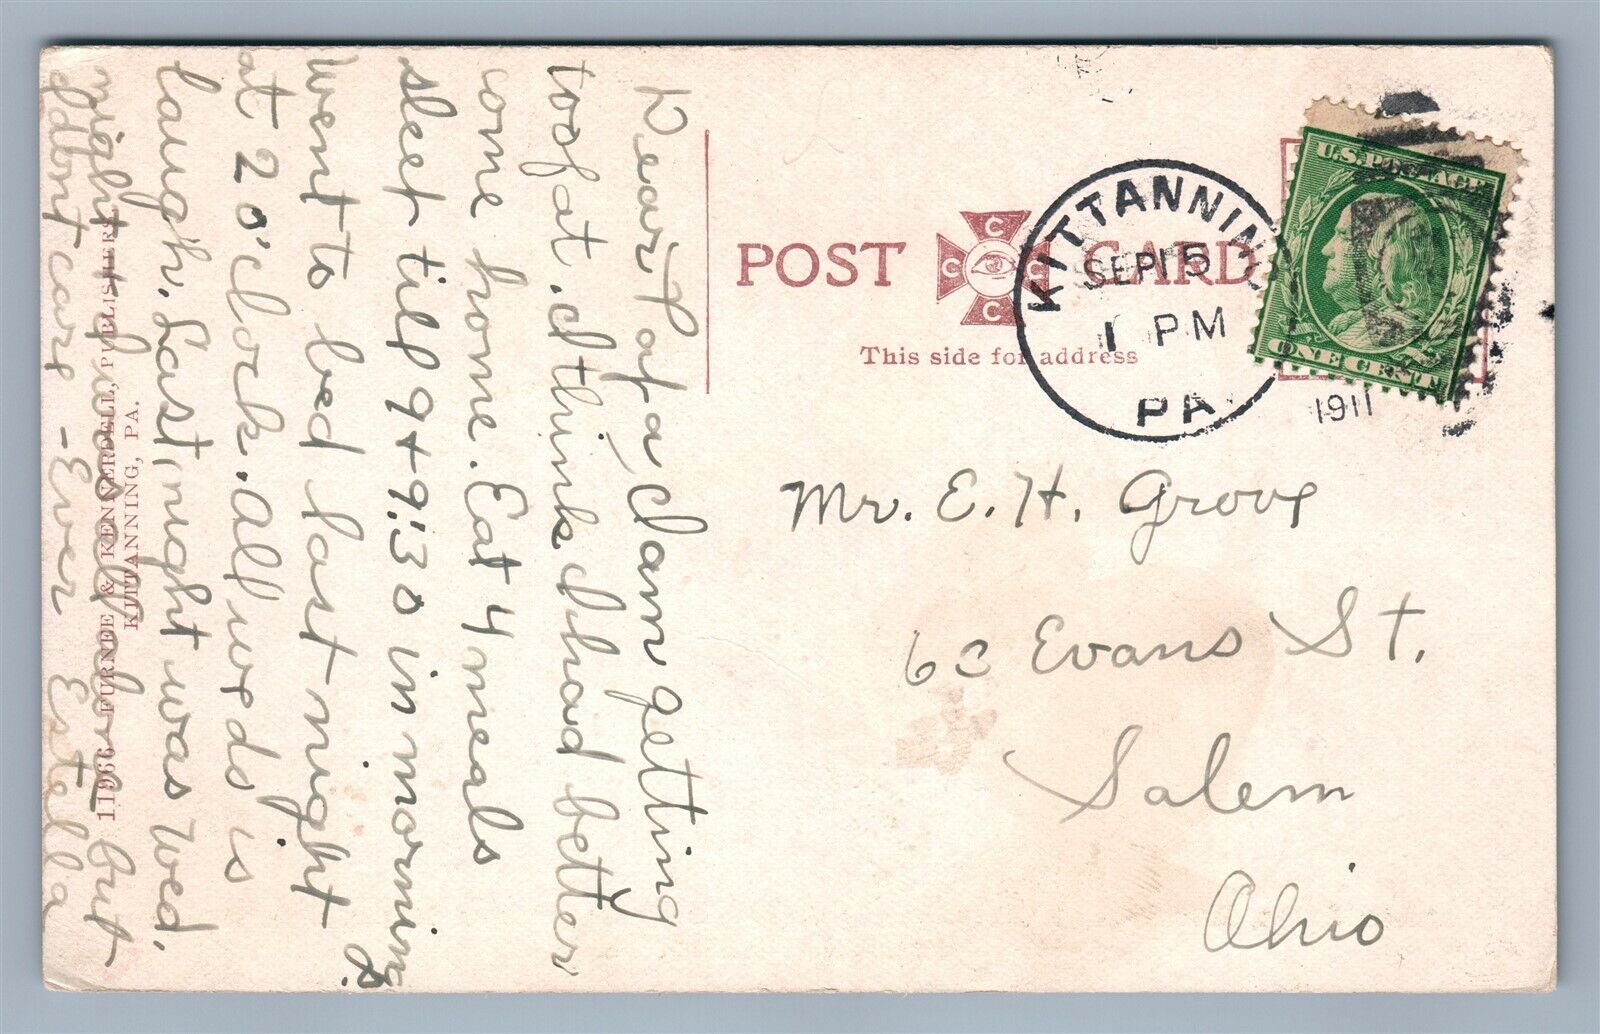 Dear Papa, I am getting
too fat. I think I had better
come home. Eat 4 meals
sleep till 9 + 9:30 in morning
Went to bed last night
at 2 o'clock. All we do is
laugh. Last night was Wed.
night I was all alone but
I don't care - Ever Estella
11966 FURNEE & KENNERDELL, PUBLISHERS,
KITTANNING, PA.
POST CARD
C C C C
This side for address
KITTANNING
SEP 15
1 PM
PA.
1911
U.S. POSTAGE
ONE CENT
Mr. E. H. Grove
63 Evans St.
Salem
Ohio